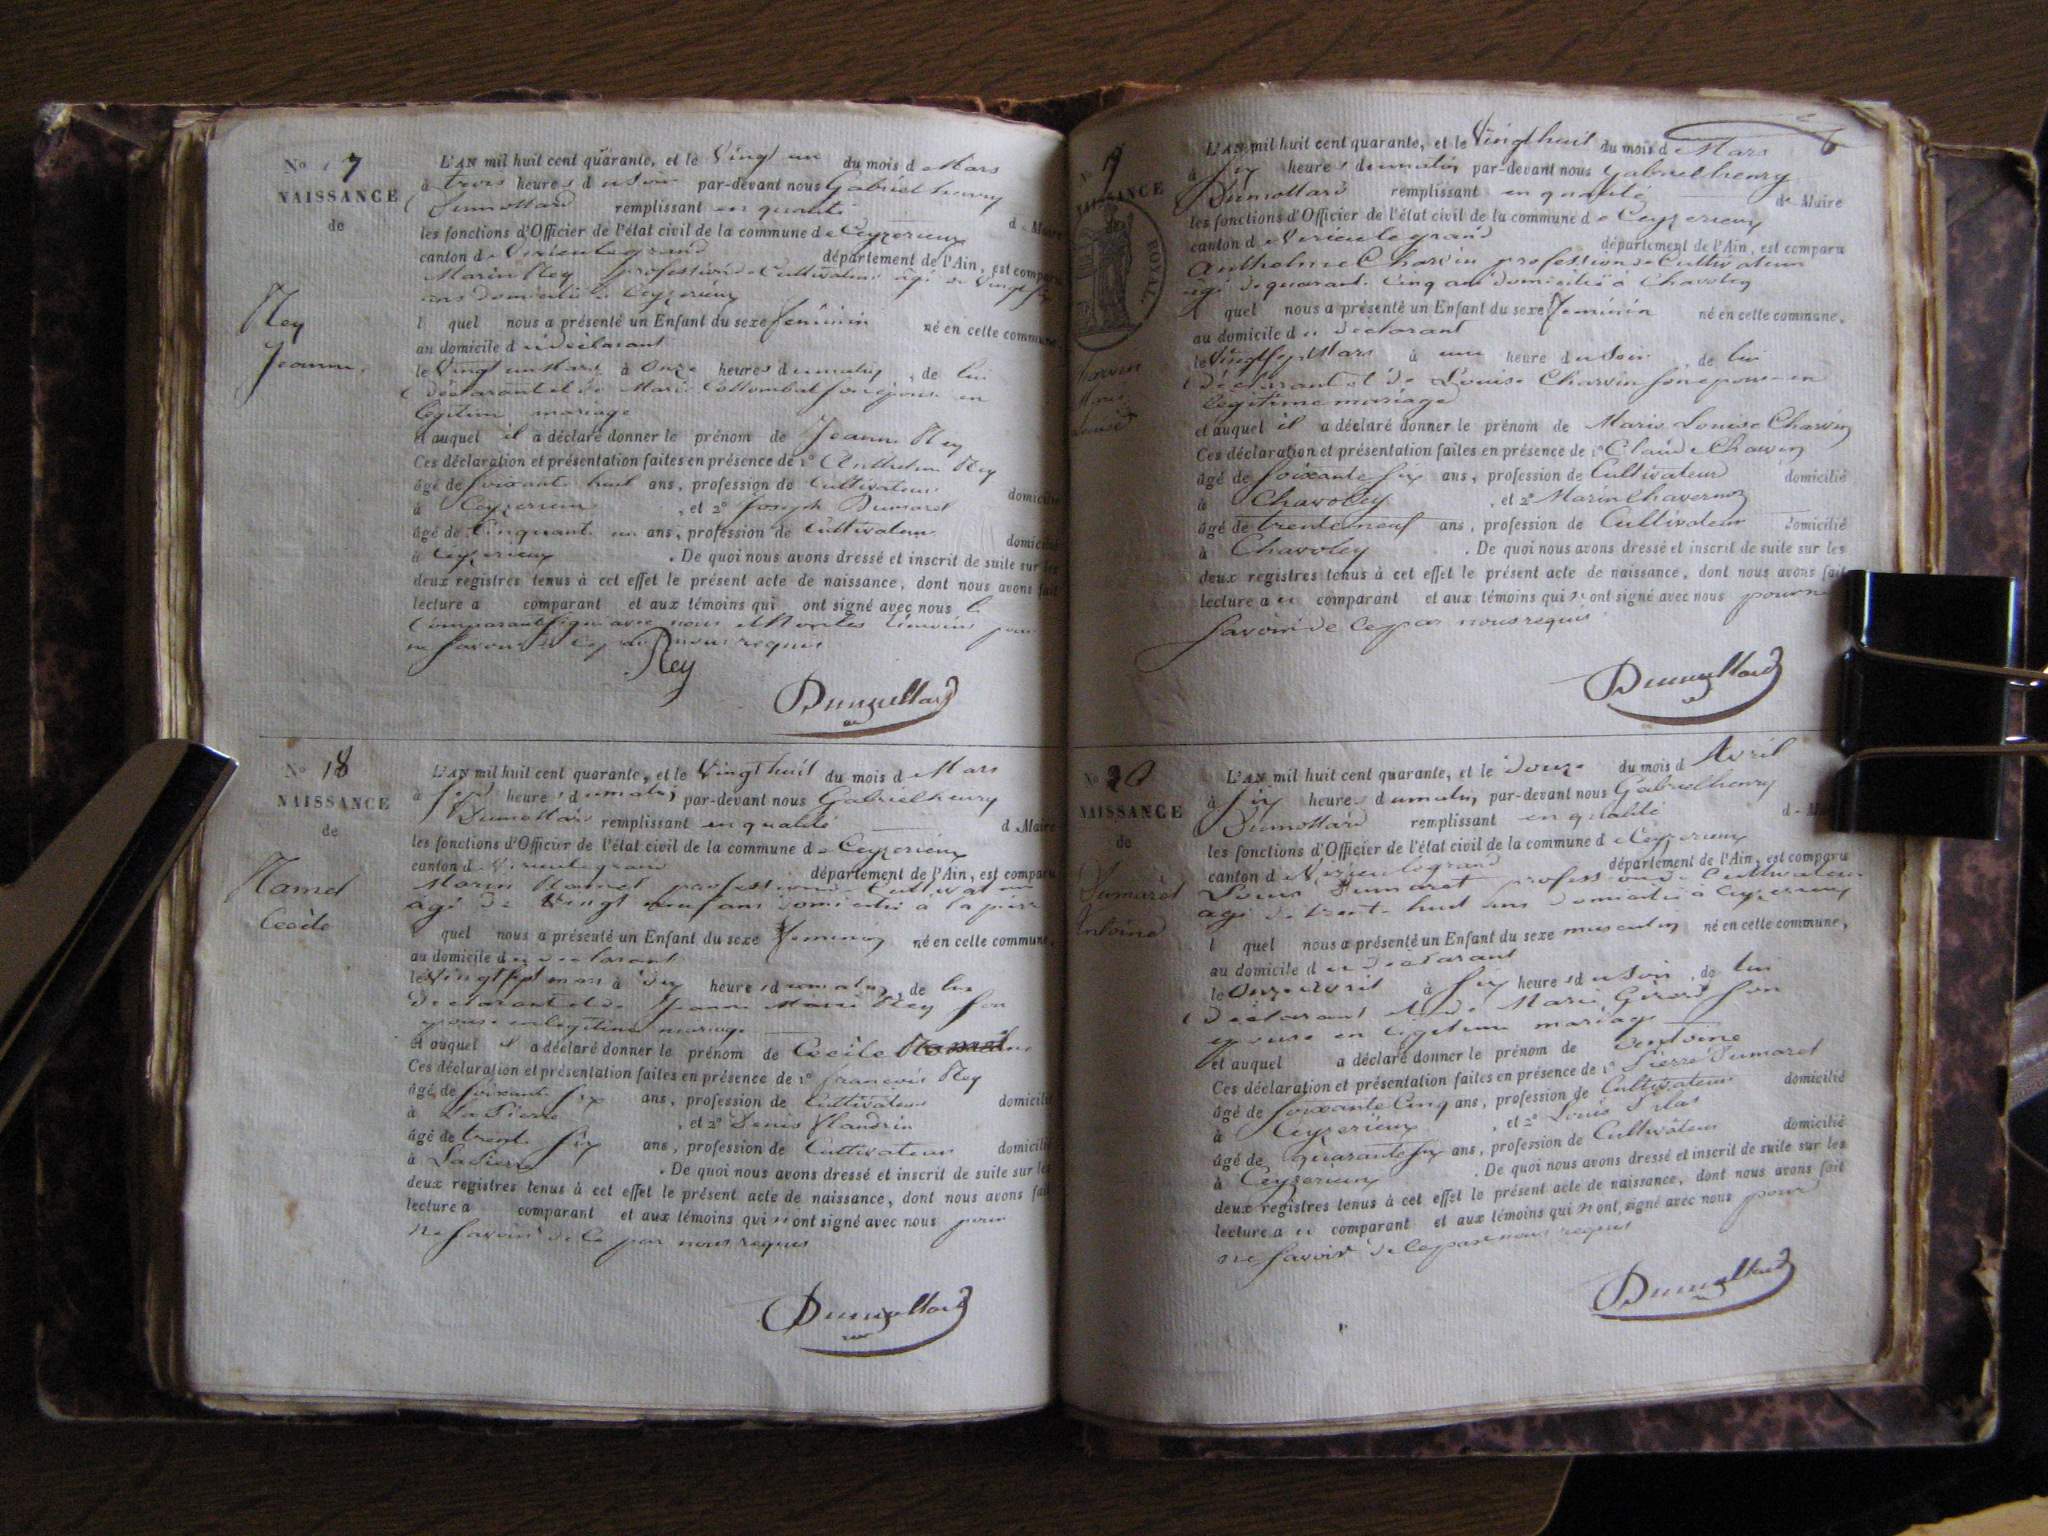 N° 17
NAISSANCE
de
Rey
Jeanne.
L'AN mil huit cent quarante, et le Vingt un du mois d e Mars
à trois heures du Soir par-devant nous Gabriel henry
Dumollard remplissant en qualité de Maire
les fonctions d'Officier de l'état civil de la commune de Ceyzerieux
canton de Virieu le grand département de l'Ain, est comparu
Marin Rey profession de Cultivateur agé de Vingt six
ans domicilié à Ceyzerieux
l quel nous a présenté un Enfant du sexe feminin né en cette commune,
au domicile du déclarant
le Vingt un Mars à Onze heures du matin, de lui
déclarant et de Marie Collombat son épouse en
légitime mariage
et auquel il a déclaré donner le prénom de Jeanne Rey
Ces déclaration et présentation faites en présence de 1° Anthelme Rey
âgé de soixante huit ans, profession de Cultivateur domicilié
à Ceyzerieux, et 2° Joseph Dumaret
âgé de Cinquante un ans, profession de Cultivateur domicilié
à Ceyzerieux. De quoi nous avons dressé et inscrit de suite sur les
deux registres tenus à cet effet le présent acte de naissance, dont nous avons fait
lecture a comparant et aux témoins qui ont signé avec nous le
Comparant signé avec nous et les témoins pour
ne savoir de ce par nous requis
Rey
Dumollard
N° 18
NAISSANCE
de
Ramel
Cecile
L'AN mil huit cent quarante, et le Vingt huit du mois de Mars
à heures du matin, par-devant nous Gabriel henry
Dumollard remplissant en qualité de Maire
les fonctions d'Officier de l'état civil de la commune de Ceyzerieux
canton de Virieu le grand département de l'Ain, est comparu
Marin Ramel profession de Cultivateur
agé de Vingt neuf ans domicilié à la pierre
l quel nous a présenté un Enfant du sexe feminin né en cette commune,
au domicile du declarant
le Vingt sept mars à dix heures du matin, de lui
declarant et de Jeanne Marie Rey son
epouse en legitime mariage
et auquel il a déclaré donner le prénom de Cecile
Ces déclaration et présentation faites en présence de 1° francois Rey
âgé de soixante six ans, profession de Cultivateur domicilié
à La Pierre, et 2° Denis Flandrin
âgé de trente six ans, profession de Cultivateur domicilié
à La Pierre. De quoi nous avons dressé et inscrit de suite sur les
deux registres tenus à cet effet le présent acte de naissance, dont nous avons fait
lecture a comparant et aux témoins qui n'ont signé avec nous pour
ne savoir de ce par nous requis
Dumollard
N° 19
NAISSANCE
ROYAL
Charvin
Marie
Louise
L'AN mil huit cent quarante, et le Vingt huit du mois de Mars
à six heures du matin, par-devant nous Gabriel henry
Dumollard remplissant en qualité de Maire
les fonctions d'Officier de l'état civil de la commune de Ceyzerieux
canton de Virieu le grand département de l'Ain, est comparu
Anthelme Charvin profession de Cultivateur
agé de quarante Cinq ans domicilié à Chavoley
l quel nous a présenté un Enfant du sexe feminin né en cette commune,
au domicile du declarant
le Vingt sept Mars à une heure du Soir, de lui
déclarant et de Louise Charvin son epouse en
legitime mariage
et auquel il a déclaré donner le prénom de Marie Louise Charvin
Ces déclaration et présentation faites en présence de 1° Claude Charvin
âgé de soixante six ans, profession de Cultivateur domicilié
à Chavoley, et 2° Marin Chavernoz
âgé de trente neuf ans, profession de Cultivateur domicilié
à Chavoley. De quoi nous avons dressé et inscrit de suite sur les
deux registres tenus à cet effet le présent acte de naissance, dont nous avons fait
lecture au comparant et aux témoins qui n'ont signé avec nous pour ne
savoir de ce par nous requis
Dumollard
N° 20
NAISSANCE
de
Dumaret
Antoine
L'AN mil huit cent quarante, et le douze du mois d Avril
à six heures du matin, par-devant nous Gabriel henry
Dumollard remplissant en qualité de Maire
les fonctions d'Officier de l'état civil de la commune de Ceyzerieux
canton de Virieu le grand département de l'Ain, est comparu
Louis Dumaret profession de Cultivateur
agé de trente huit ans domicilié à Ceyzerieux
l quel nous a présenté un Enfant du sexe masculin né en cette commune,
au domicile du declarant
le Onze Avril à six heures du Soir, de lui
déclarant et de Marie Girord son
epouse en legitime mariage
et auquel a déclaré donner le prénom de Antoine
Ces déclaration et présentation faites en présence de 1° Pierre Dumaret
âgé de soixante Cinq ans, profession de Cultivateur domicilié
à Ceyzerieux, et 2° Louis
âgé de quarante six ans, profession de Cultivateur domicilié
à Ceyzerieux. De quoi nous avons dressé et inscrit de suite sur les
deux registres tenus à cet effet le présent acte de naissance, dont nous avons fait
lecture au comparant et aux témoins qui n'ont signé avec nous pour
ne savoir de ce par nous requis
Dumollard